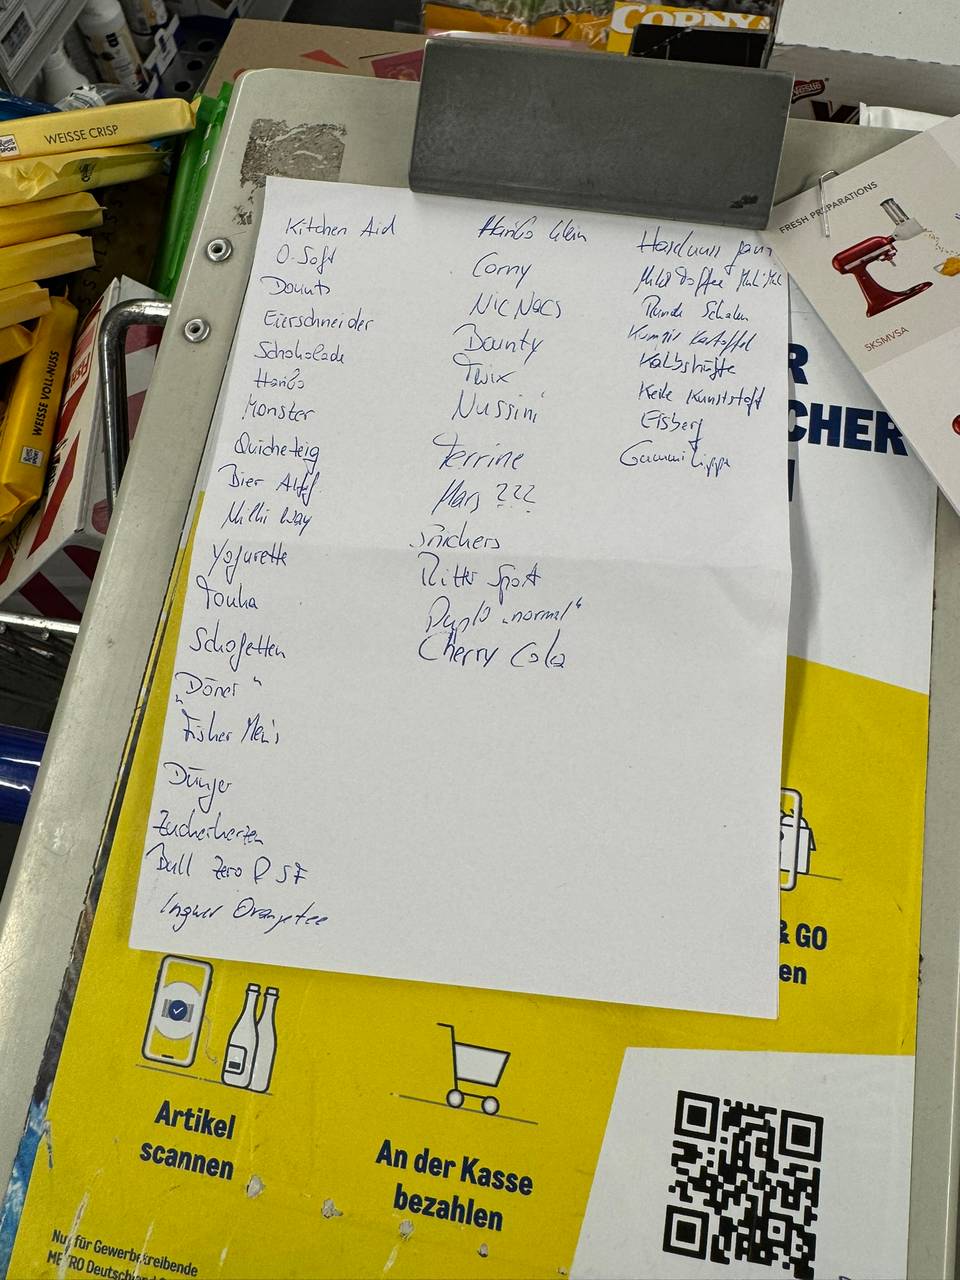 CORNY
Nestlé
WEISSE CRISP
WEISSE VOLL-NUSS
FRESH PREPARATIONS
SKSMVSA
Kitchen Aid
O-Saft
Donuts
Eierschneider
Schokolade
Haribo
Monster
Quicheteig
Bier Alkf
Milki Way
Yogurette
Touka
Schogetten
"Döner"
Fisher Men's
Dünger
Zuckerherzen
Bull Zero & SF
Ingwer Orangetee
Haribo klein
Corny
Nic Nacs
Bounty
Twix
Nussini
Terrine
Mars ???
Snickers
Ritter Sport
Duplo "normal"
Cherry Cola
Haselnuss ganz
Mild Toffee
Runde Schalen
Kumpir Kartoffel
Kalbshüfte
Keile Kunststoff
Eisberg
Gummilippe
R
CHER
& GO
en
Artikel
scannen
An der Kasse
bezahlen
Nur für Gewerbetreibende
METRO Deutschland